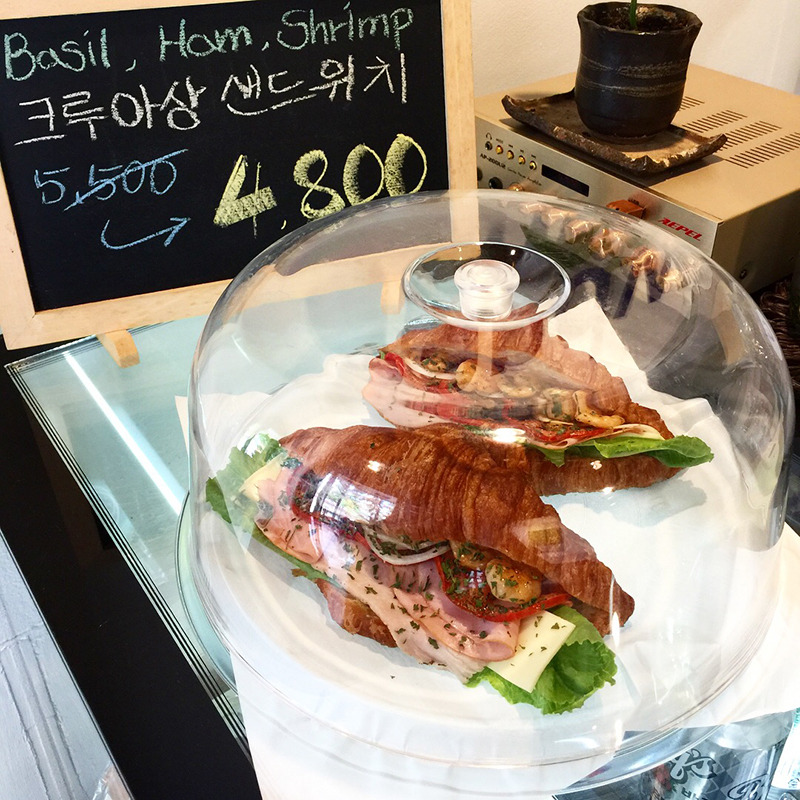 Basil, Ham, Shrimp
크루아상 샌드위치
5,500
4,800
AEPEL